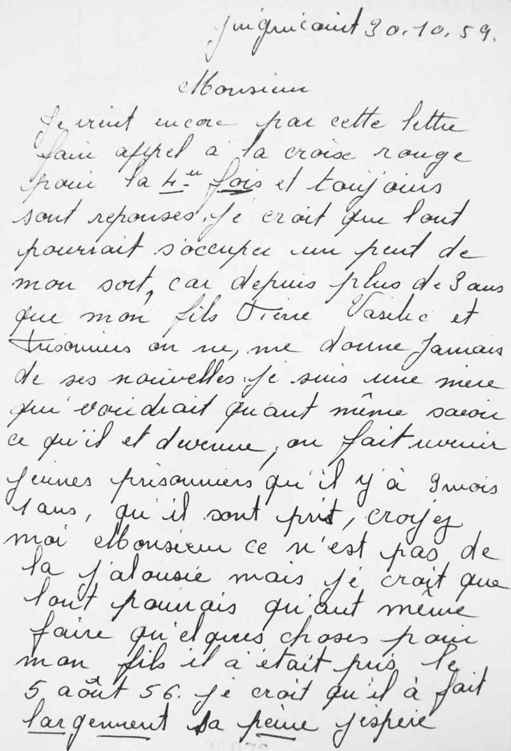 Juignicourt 30.10.59.
Monsieur
Je vient encore par cette lettre
faire appel a la croix rouge
pour la 4-eu fois et toujours
sont reponses. Je croit que lont
pourrait s'occuper un peut de
mon sort, car depuis plus de 3 ans
que mon fils Pierre Vasilic et
trisonniers on ne, me donne jamais
de ses nouvelles. Je suis une mere
qui voudrait quant même savoir
ce qu'il et devenue, on fait revenir
jeunes prisonniers qu'il y'à 9 mois
1 ans, qu'il sont prit, croyez
moi Monsieur ce n'est pas de
la jalousie mais je croit que
lont pourrais qu'ant même
faire qu'elques choses pour
mon fils il a'était pris le
5 août 56. je croit qu'il à fait
largennent sa peine jespere